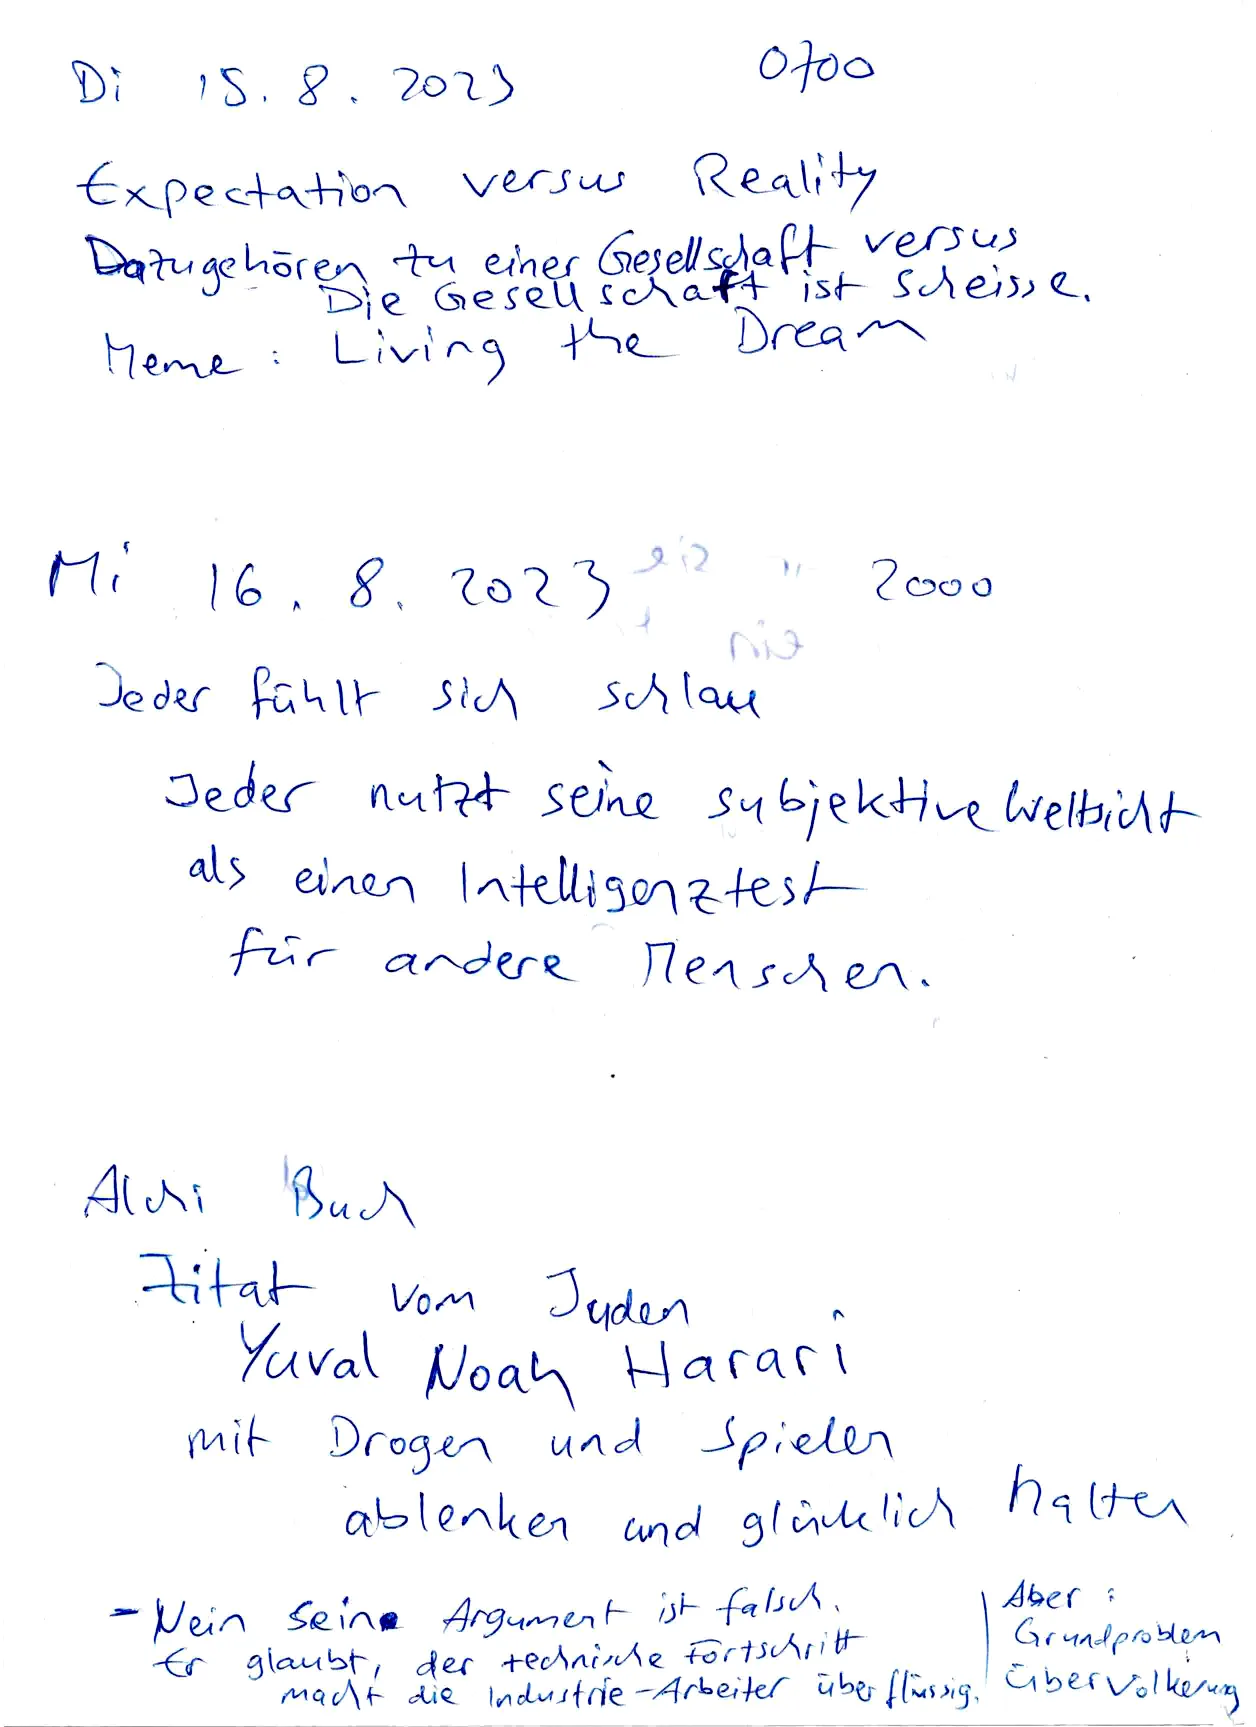 Di 15.8.2023 0700
Expectation versus Reality
Dazugehören zu einer Gesellschaft versus
Die Gesellschaft ist scheisse.
Meme: Living the Dream
Mi 16.8.2023 2000
Jeder fühlt sich schlau
Jeder nutzt seine subjektive Weltsicht
als einen Intelligenztest
für andere Menschen.
Alchi Buch
Zitat vom Juden
Yuval Noah Harari
mit Drogen und Spielen
ablenken und glücklich halten
- Nein sein Argument ist falsch.
Er glaubt, der technische Fortschritt
macht die Industrie-Arbeiter überflüssig.
Aber:
Grundproblem
Übervölkerung